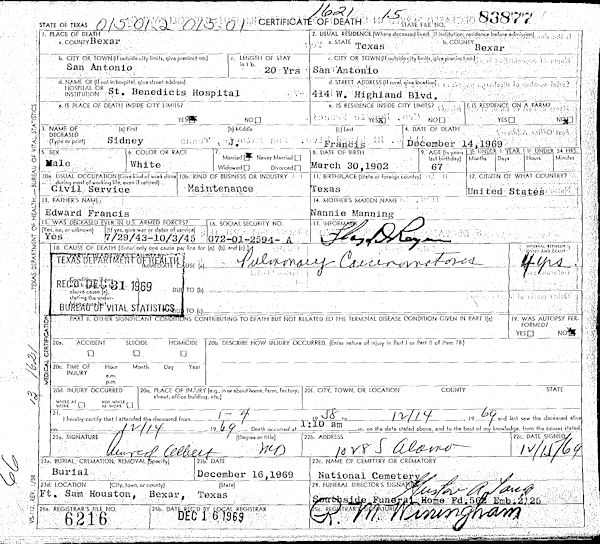 015-01-2 015-01 1621 15
STATE OF TEXAS CERTIFICATE OF DEATH STATE FILE NO. 83877
1. PLACE OF DEATH 2. USUAL RESIDENCE (Where deceased lived. If institution: residence before admission)
a. COUNTY Bexar a. STATE Texas b. COUNTY Bexar
b. CITY OR TOWN (If outside city limits, give precinct no.) c. LENGTH OF STAY c. CITY OR TOWN (If outside city limits, give precinct no.)
San Antonio 20 Yrs San Antonio
d. NAME OF (If not in hospital, give street address) d. STREET ADDRESS (If rural, give location)
HOSPITAL OR INSTITUTION St. Benedicts Hospital 414 W. Highland Blvd.
e. IS PLACE OF DEATH INSIDE CITY LIMITS? e. IS RESIDENCE INSIDE CITY LIMITS? f. IS RESIDENCE ON A FARM?
YES NO YES NO YES NO
3. NAME OF DECEASED (Type or print) (a) First (b) Middle (c) Last 4. DATE OF DEATH
Sidney J. Francis December 14,1969
5. SEX 6. COLOR OR RACE 7. Married Never Married 8. DATE OF BIRTH 9. AGE (In years last birthday) IF UNDER 1 YEAR IF UNDER 24 HRS.
Male White Widowed Divorced March 30,1902 67 Months Days Hours Minutes
10a. USUAL OCCUPATION (Give kind of work done during most of working life, even if retired) 10b. KIND OF BUSINESS OR INDUSTRY 11. BIRTHPLACE (State or foreign country) 12. CITIZEN OF WHAT COUNTRY?
Civil Service Maintenance Texas United States
13. FATHER'S NAME 14. MOTHER'S MAIDEN NAME
Edward Francis Nannie Manning
15. WAS DECEASED EVER IN U.S. ARMED FORCES? 16. SOCIAL SECURITY NO. 17. INFORMANT
(Yes, no, or unknown) (If yes, give war or dates of service)
Yes 7/29/43-10/3/45 072-01-2594- A
18. CAUSE OF DEATH (Enter only one cause per line for (a), (b), and (c).) INTERVAL BETWEEN ONSET AND DEATH
TEXAS DEPARTMENT OF HEALTH (a) Pulmonary Carcinomatosis 4 yrs.
REC'D DEC 31 1969 DUE TO (b)
BUREAU OF VITAL STATISTICS DUE TO (c)
PART II. OTHER SIGNIFICANT CONDITIONS CONTRIBUTING TO DEATH BUT NOT RELATED TO THE TERMINAL DISEASE CONDITION GIVEN IN PART I(a) 19. WAS AUTOPSY PERFORMED?
YES NO
20a. ACCIDENT SUICIDE HOMICIDE 20b. DESCRIBE HOW INJURY OCCURRED. (Enter nature of injury in Part I or Part II of item 18)
20c. TIME OF INJURY Hour Month Day Year
a.m.
p.m.
20d. INJURY OCCURRED 20e. PLACE OF INJURY (e.g., in or about home, farm, factory, street, office building, etc.) 20f. CITY, TOWN, OR LOCATION COUNTY STATE
WHILE AT WORK NOT WHILE AT WORK
21. I hereby certify that I attended the deceased from 1-4 1958 to 12/14 1969 and last saw the deceased alive
on 12/14 1969 Death occurred at 1:10 am m. on the date stated above, and to the best of my knowledge, from the causes stated.
22a. SIGNATURE (Degree or title) 22b. ADDRESS 22c. DATE SIGNED
Albert MD 1028 S Alamo 12/15/69
23a. BURIAL, CREMATION, REMOVAL (Specify) 23b. DATE 23c. NAME OF CEMETERY OR CREMATORY
Burial December 16,1969 National Cemetery
23d. LOCATION (City, town, or county) (State) 24. FUNERAL DIRECTOR'S SIGNATURE
Ft. Sam Houston, Bexar, Texas Southside Funeral Home Fd.562 Emb.2125
25a. REGISTRAR'S FILE NO. 25b. DATE REC'D BY LOCAL REGISTRAR 25c. REGISTRAR'S SIGNATURE
6216 DEC 16 1969 R. M. Winingham
TEXAS DEPARTMENT OF HEALTH - BUREAU OF VITAL STATISTICS
MEDICAL CERTIFICATION
13 1621
66
VS-112 REV. 1/58